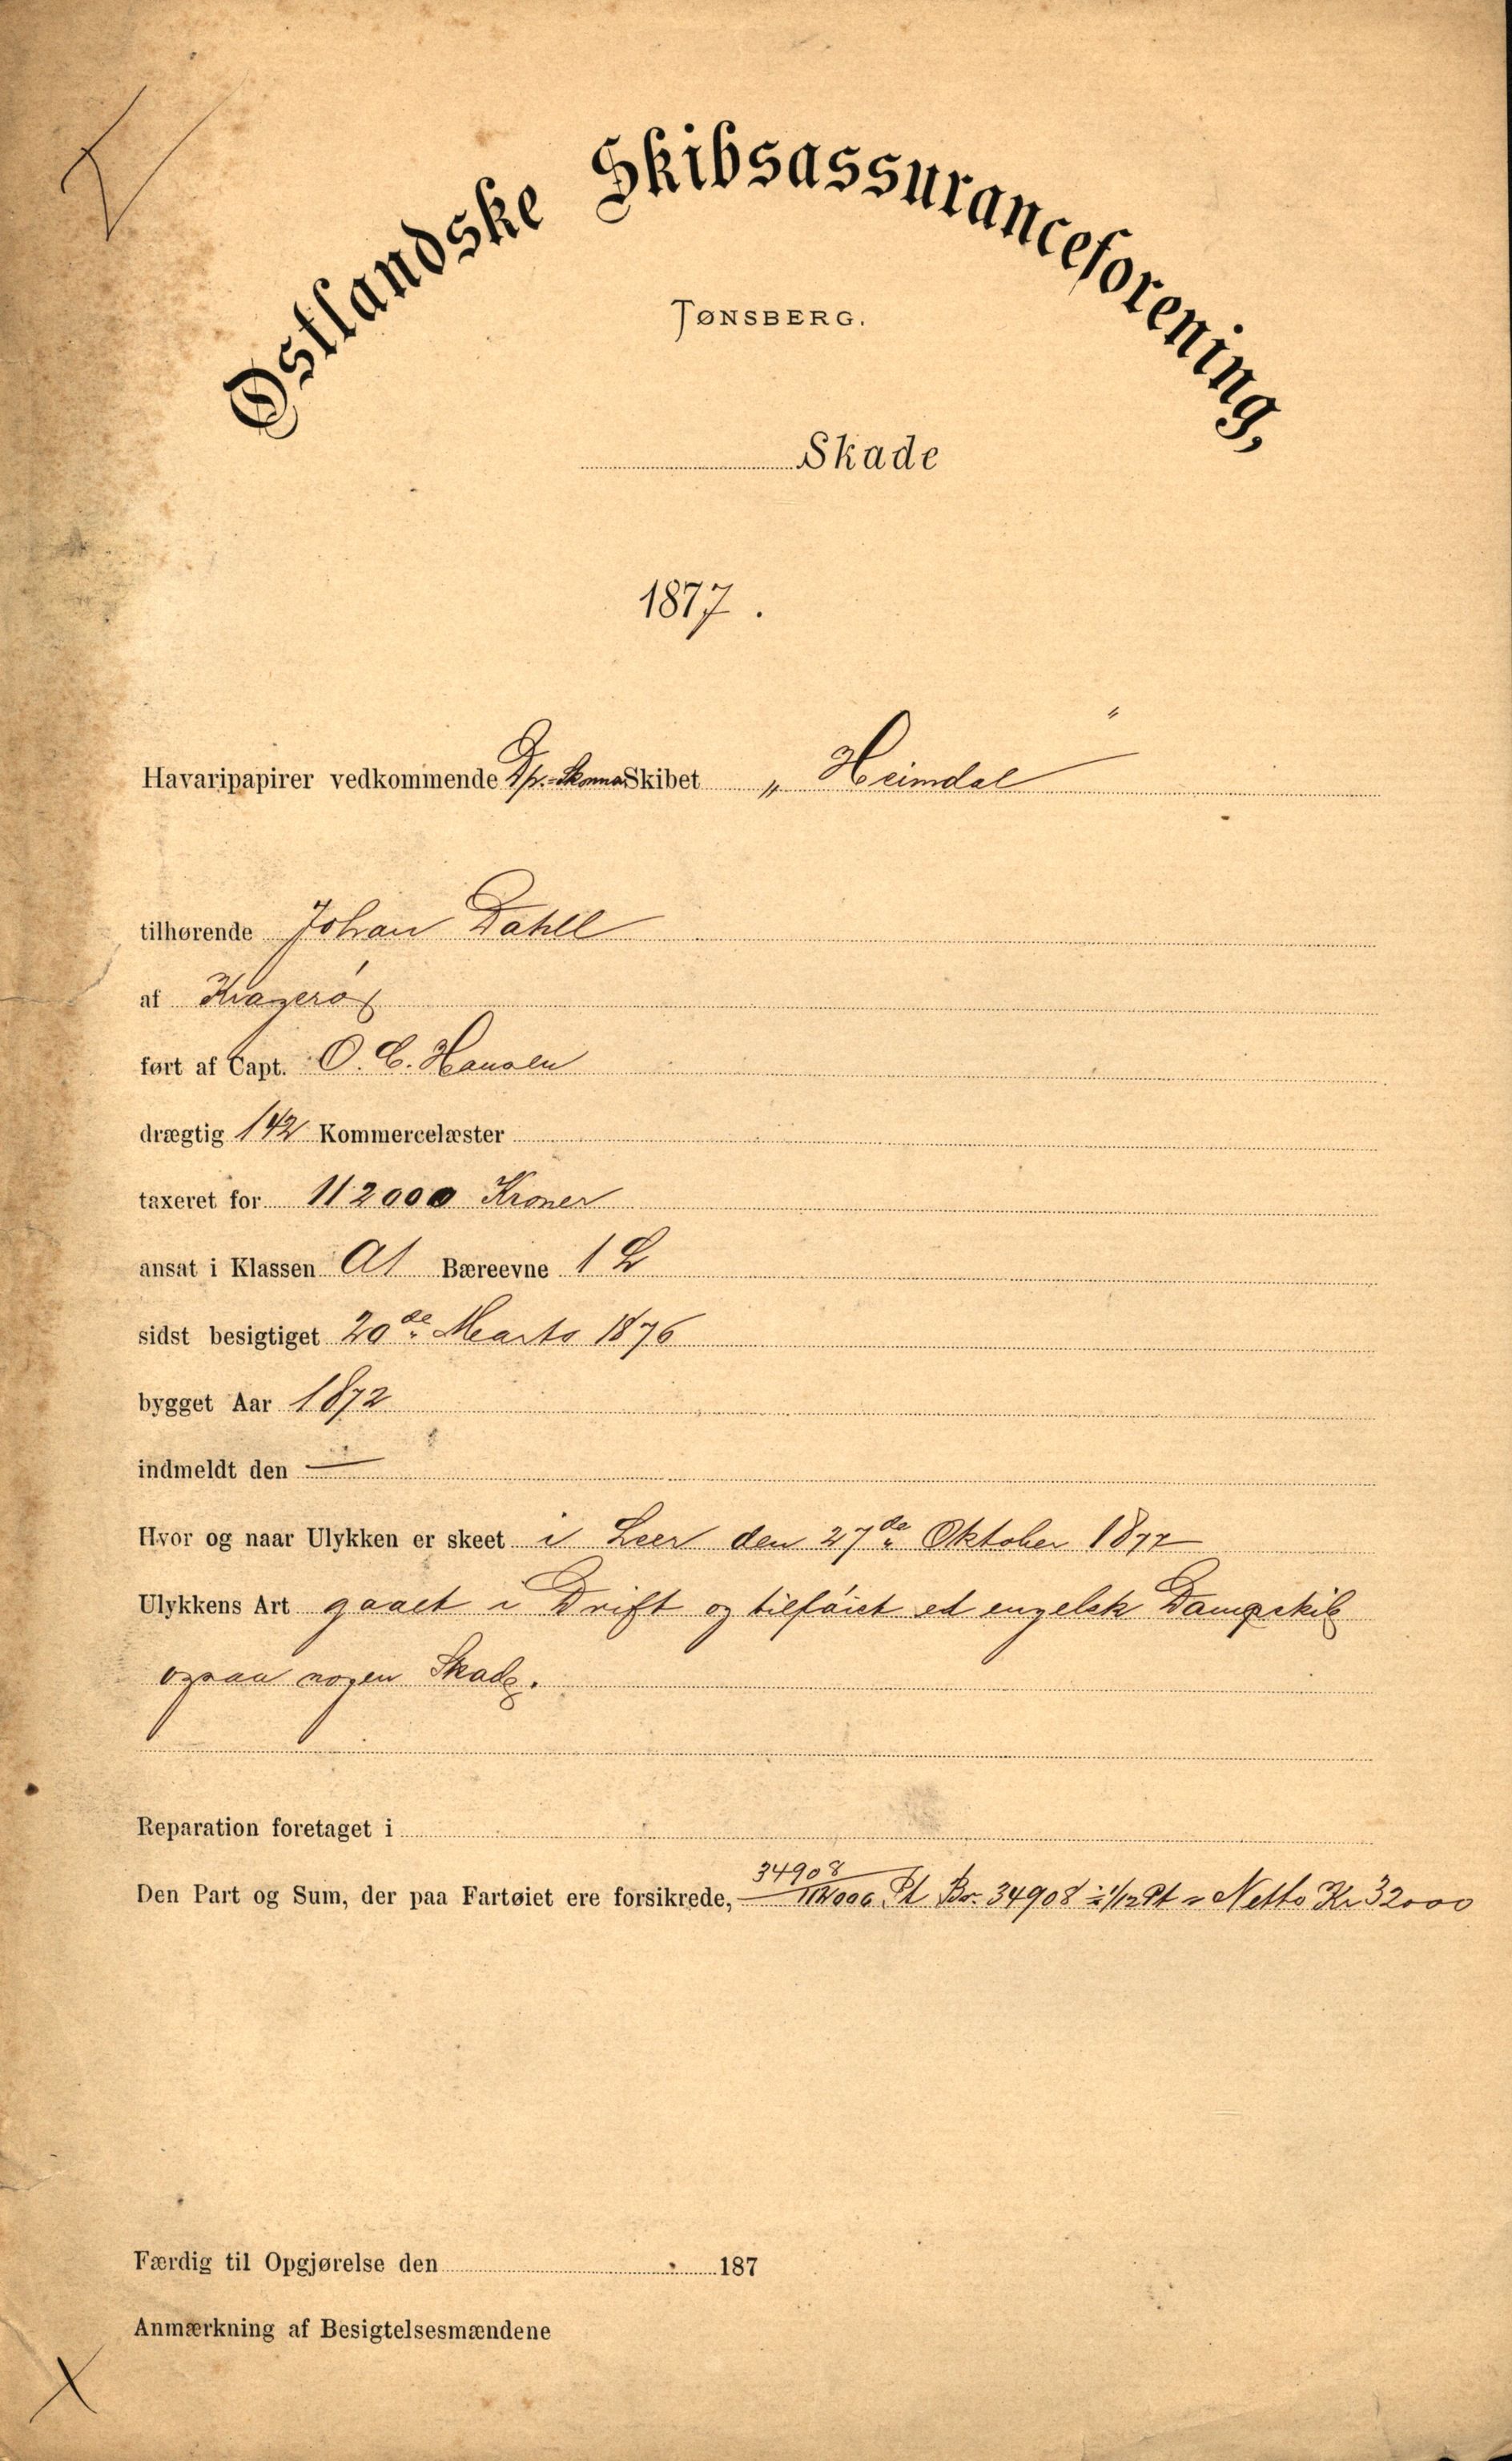 Østlandske Skibsassuranceforening,
TØNSBERG.
Skade
1877.
Havaripapirer vedkommende Dp. Skonnr Skibet „Heimdal"
tilhørende Johan Dahll
af Kragerø
ført af Capt. O. C. Hansen
drægtig 142 Kommercelæster
taxeret for 112000 Kroner
ansat i Klassen A1 Bæreevne 1 L
sidst besigtiget 20de Marts 1876
bygget Aar 1872
indmeldt den —
Hvor og naar Ulykken er skeet i Leer den 27de Oktober 1877
Ulykkens Art gaaet i Drift og tilføiet et engelsk Dampskib
ogsaa nogen Skade.
Reparation foretaget i
Den Part og Sum, der paa Fartøiet ere forsikrede, 34908/112000 Pt Br. 34908 ÷ 1/12 Pt = Netto Kr 32000
Færdig til Opgjørelse den 187
Anmærkning af Besigtelsesmændene